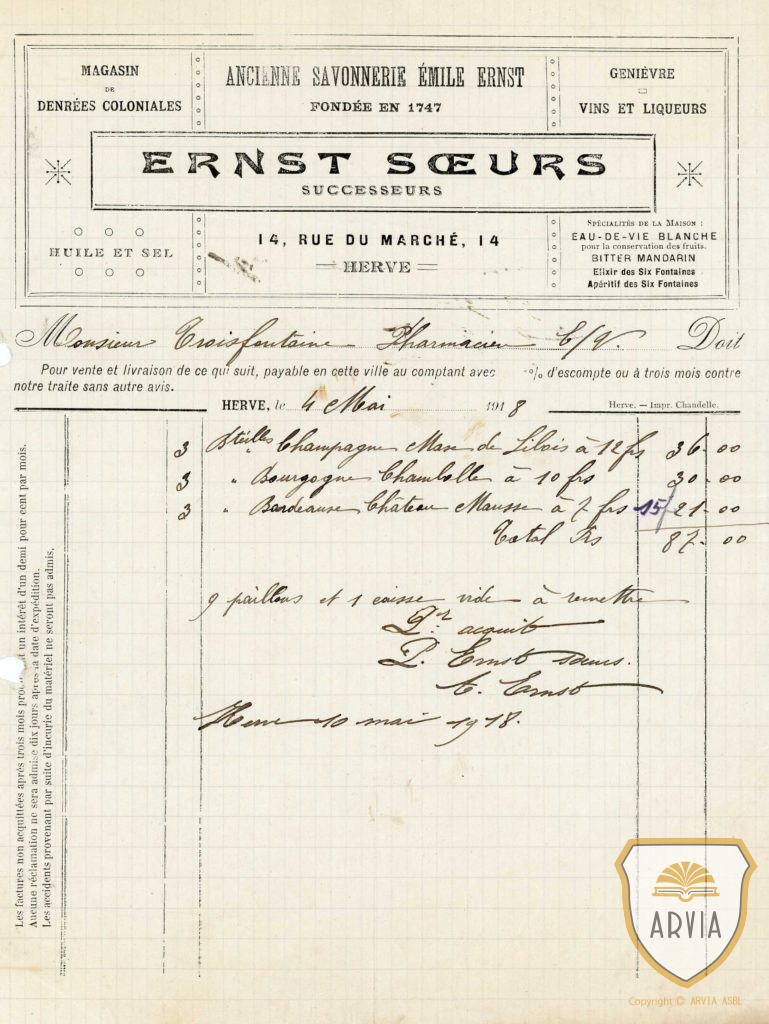 MAGASIN
DE
DENRÉES COLONIALES
ANCIENNE SAVONNERIE ÉMILE ERNST
FONDÉE EN 1747
GENIÈVRE
VINS ET LIQUEURS
ERNST SŒURS
SUCCESSEURS
HUILE ET SEL
14, RUE DU MARCHÉ, 14
HERVE
SPÉCIALITÉS DE LA MAISON :
EAU-DE-VIE BLANCHE
pour la conservation des fruits.
BITTER MANDARIN
Elixir des Six Fontaines
Apéritif des Six Fontaines
Monsieur Troisfontaine Pharmacien E/V. Doit
Pour vente et livraison de ce qui suit, payable en cette ville au comptant avec % d'escompte ou à trois mois contre
notre traite sans autre avis.
HERVE, le 4 Mai 1918
Herve. — Impr. Chandelle.
3 Bteilles Champagne Marc de à 12 frs 36.00
3 " Bourgogne Chambolle à 10 frs 30.00
3 " Bordeaux Château à 7 frs 15/ 21.00
Total Frs 87.00
9 paillons et 1 caisse vide à remettre
Pr. acquit
P. Ernst sœurs.
Ernst
Herve 10 mai 1918.
Les factures non acquittées après trois mois un intérêt d'un demi pour cent par mois.
Aucune réclamation ne sera admise dix jours après la date d'expédition.
Les accidents provenant par suite d'incurie du matériel ne seront pas admis.
ARVIA
Copyright © ARVIA ASBL